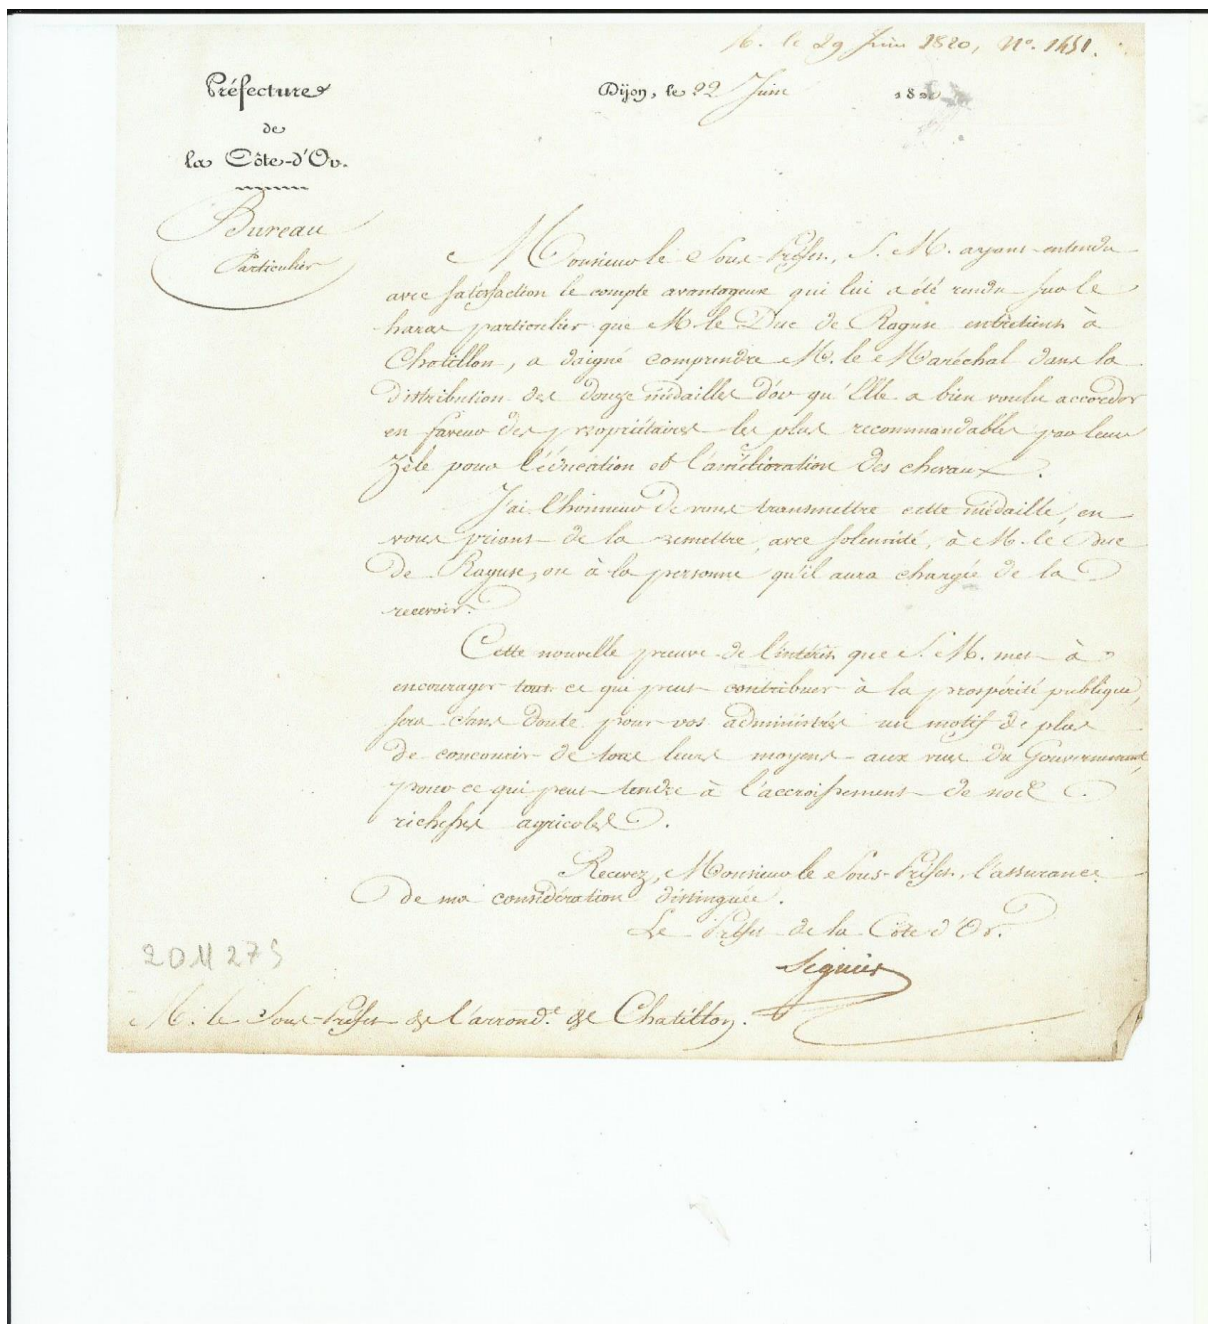 R. le 29 Juin 1820, N.o 1451.
Préfecture
de
la Côte-d'Or.
Dijon, le 22 Juin 1820
Bureau
Particulier
Monsieur le Sous-Préfet, S. M. ayant entendu
avec satisfaction le compte avantageux qui lui a été rendu sur le
haras particulier que M. le Duc de Raguse entretient à
Chatillon, a daigné comprendre M. le Maréchal dans la
distribution des douze médailles d'or qu'Elle a bien voulu accorder
en faveur des propriétaires les plus recommandables par leur
zèle pour l'éducation et l'amélioration des chevaux.
J'ai l'honneur de vous transmettre cette médaille, en
vous priant de la remettre, avec solennité, à M. le Duc
de Raguse, ou à la personne qu'il aura chargée de la
recevoir.
Cette nouvelle preuve de l'intérêt que S. M. met à
encourager tout ce qui peut contribuer à la prospérité publique,
sera sans doute pour vos administrés un motif de plus
de concourir de tous leurs moyens aux vues du Gouvernement,
pour ce qui peut tendre à l'accroissement de nos
richesses agricoles.
Recevez, Monsieur le Sous-Préfet, l'assurance
de ma considération distinguée.
Le Préfet de la Côte d'Or.
Séguier
2011 275
M. le Sous-Préfet de l'arrond.t de Chatillon.